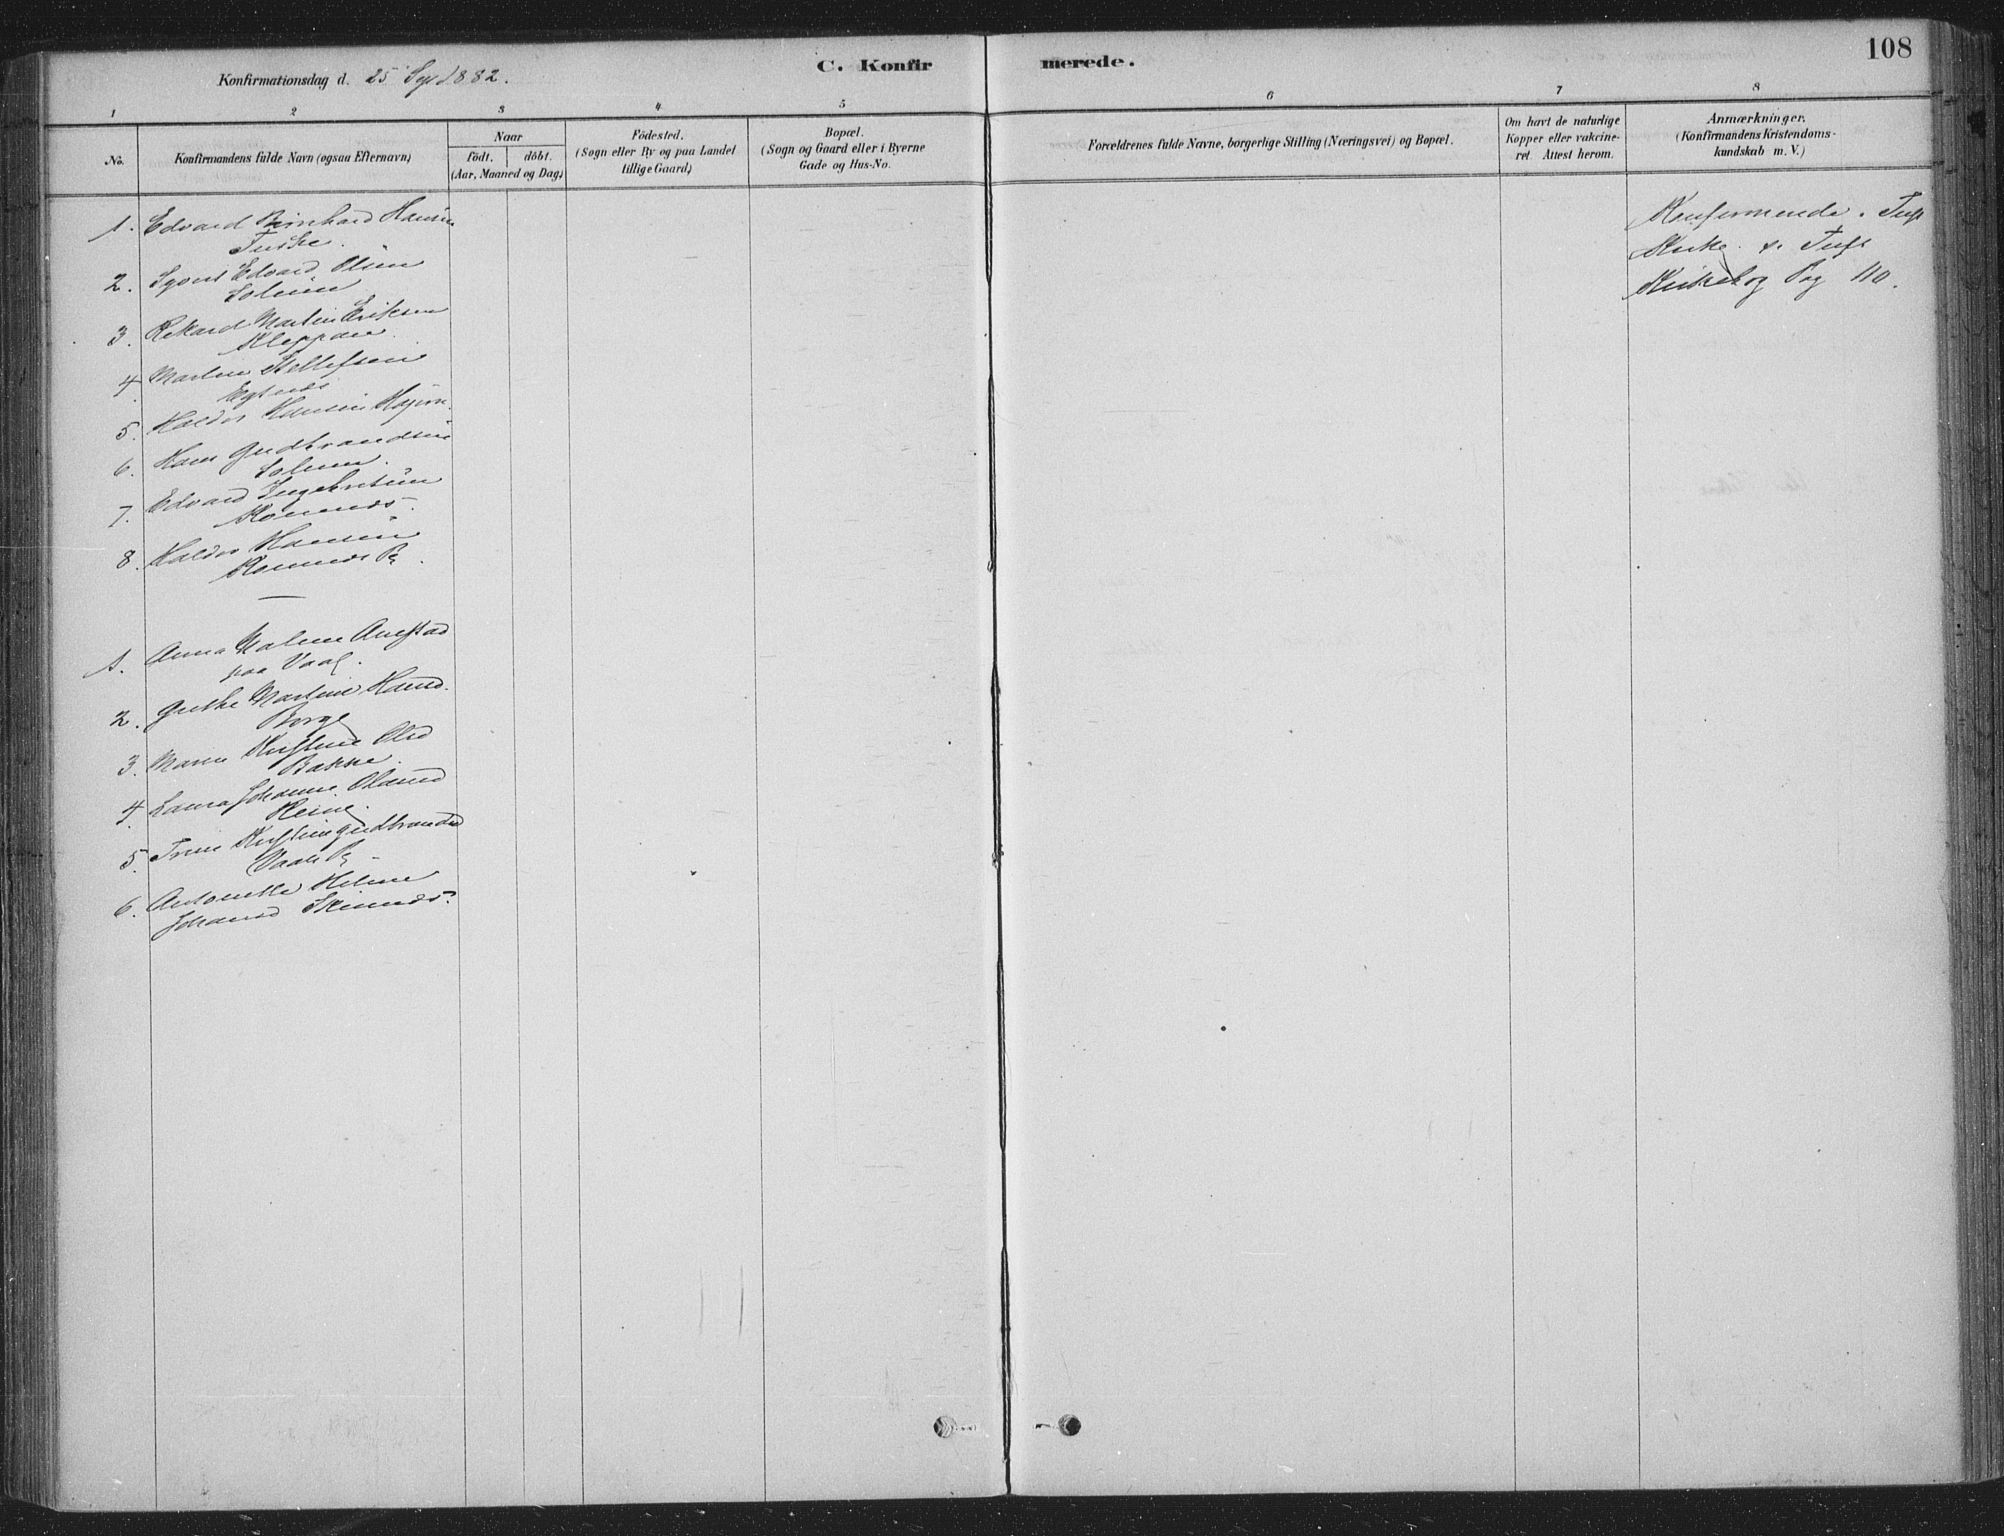 108
C. Konfirmerede.
Konfirmationsdag d. 25 Sept 1882.
1 2 3 4 5 6 7 8
No.
Konfirmandens fulde Navn (ogsaa Efternavn)
Naar
födt. döbt.
(Aar, Maaned og Dag)
Födested.
(Sogn eller By og paa Landet
tillige Gaard)
Bopæl.
(Sogn og Gaard eller i Byerne
Gade og Hus-No.
Forældrenes fulde Navne, borgerlige Stilling (Næringsvei) og Bopæl.
Om havt de naturlige
Kopper eller vakcine-
ret. Attest herom.
Anmærkninger.
(Konfirmandens Kristendoms-
kundskab m. V.)
1. Edvard Bernhard Hansen
2. Edvard Olsen
Solum
3. Rikard Martin Eriksen
Kleppan
4. Martin
5. Haldor Hansen
6. Hans Gudbrandsen
Solum.
7. Edvard Ingebretsen
8. Haldor Hansen
1. Anna Maline
paa Vaal.
2. Grethe Martine Hansd.
Borge
3. Maren Kristine Olsd
Bakke.
4. Laura Johanne Olsend
5. Trine Kristine Gudbrandsd
6. Antonette Helene
Johansd
Tuft
Kirke. s. Tuft
Kirkebog Pag 110.